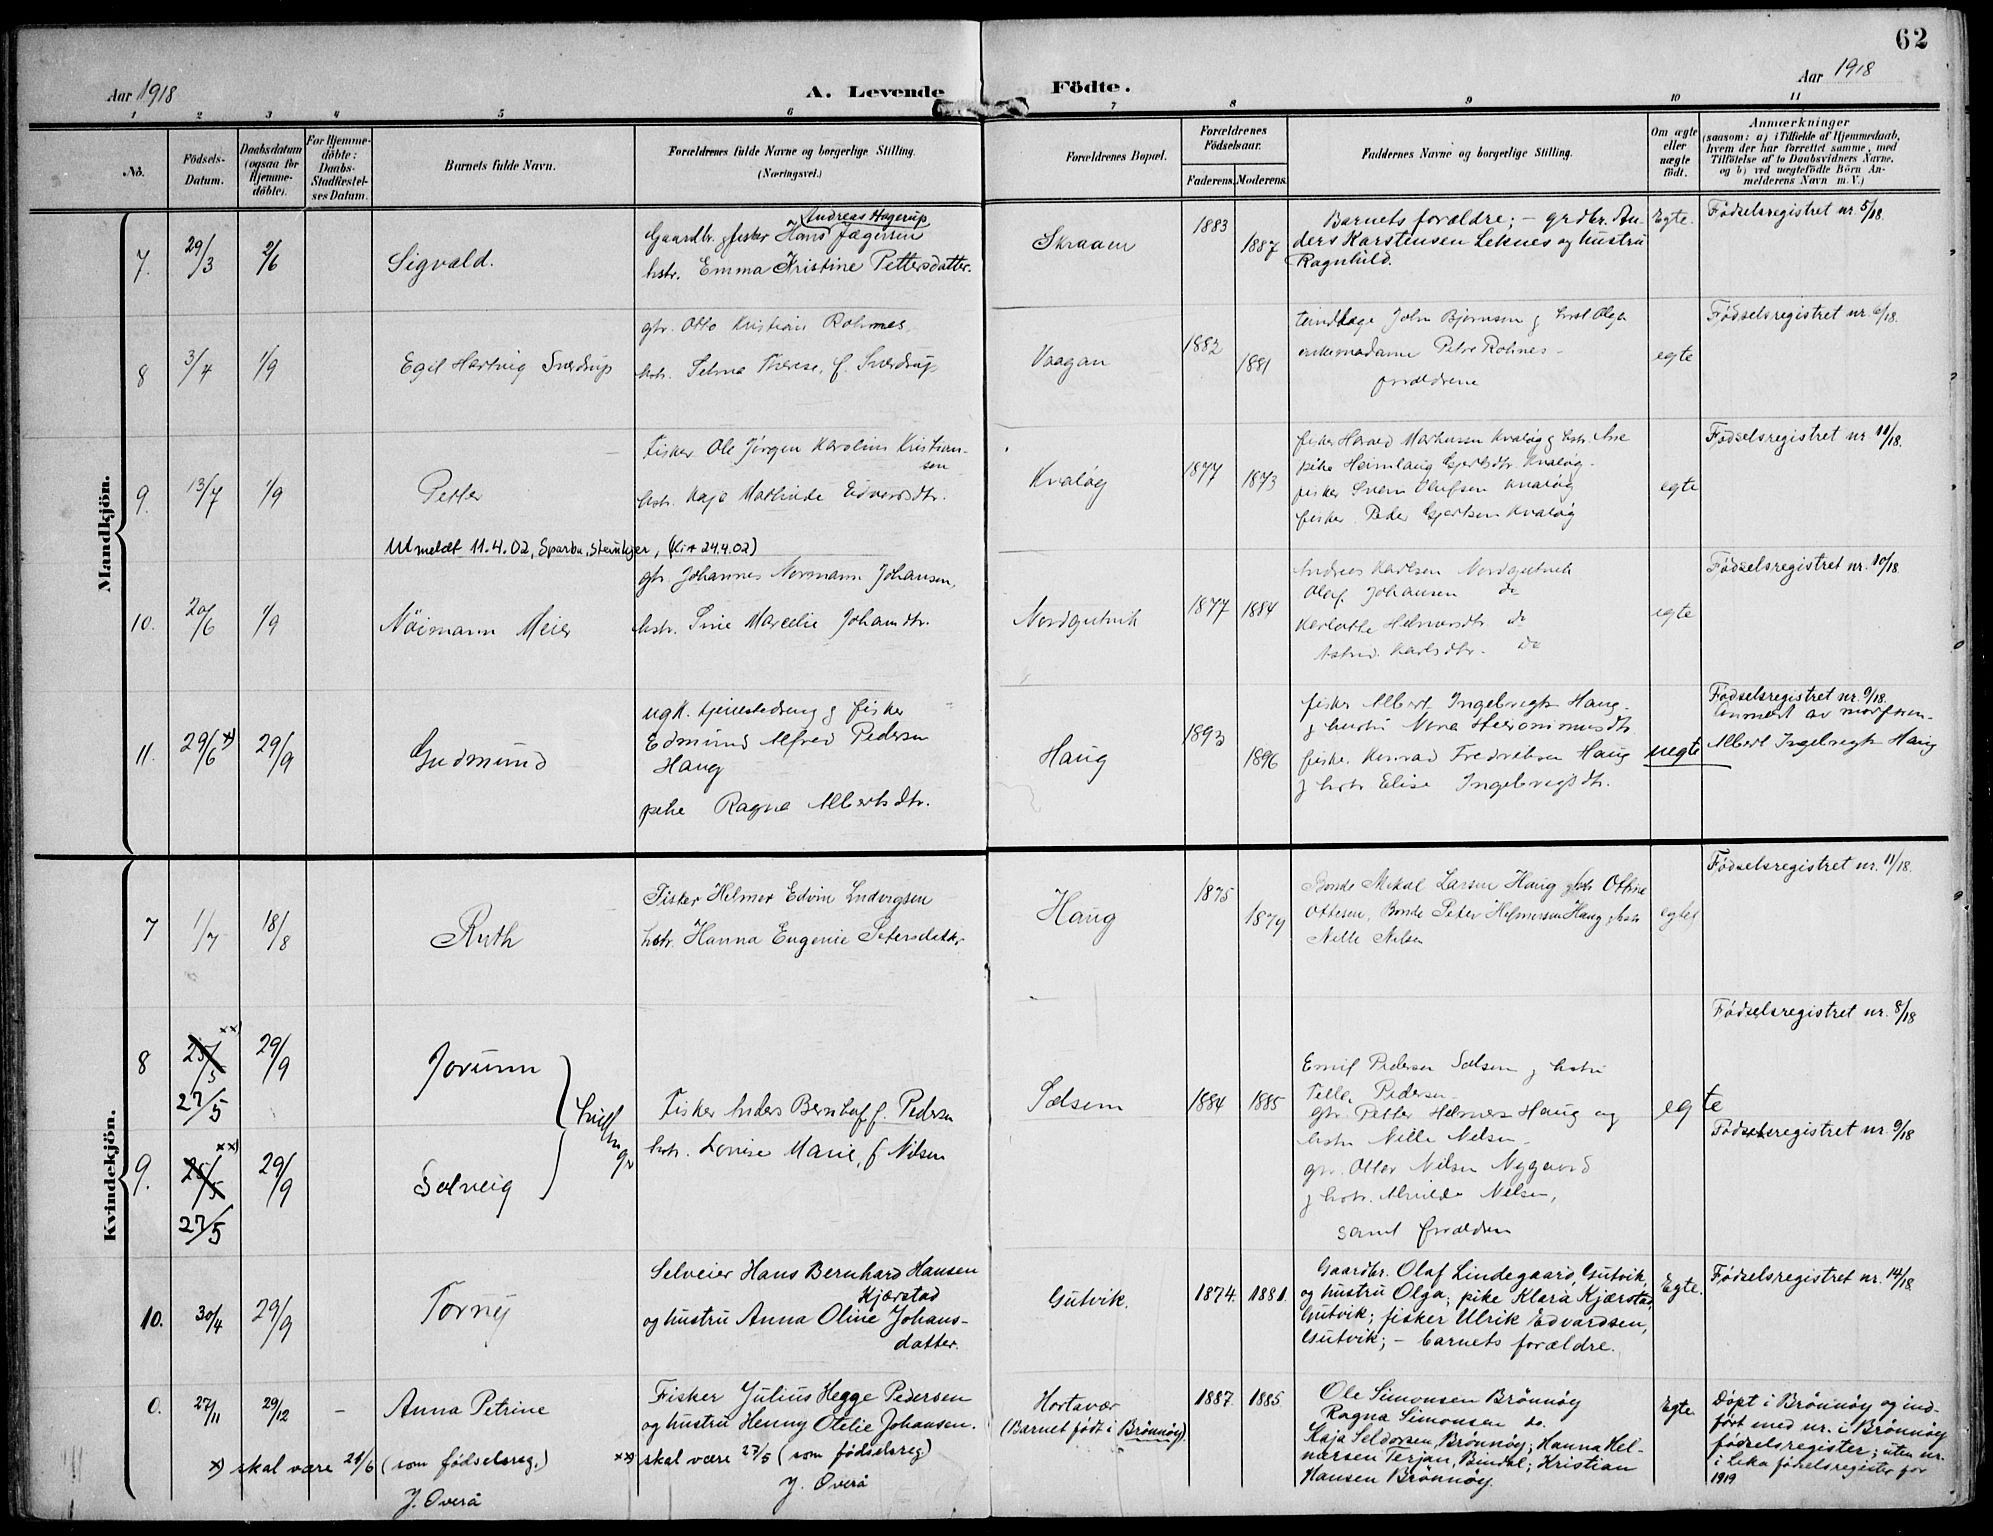 62
Aar 1918
A. Levende
Födte.
Aar 1918
1 2 3 4 5 6 7 8 9 10 11
No.
Födsels-
Datum.
Daabsdatum
(ogsaa for
Hjemme-
döbte).
For Hjemme-
döbte:
Daabs-
Stadfæstel-
ses Datum.
Barnets fulde Navn.
Forældrenes fulde Navne og borgerlige Stilling.
(Næringsvei.)
Forældrenes Bopæl.
Forældrenes
Födselsaar.
Faderens. Moderens.
Faddernes Navne og borgerlige Stilling.
Om ægte
eller
uægte
födt.
Anmærkninger
(saasom: a) i Tilfælde af Hjemmedaab,
hvem der har forrettet samme, med
Tilföielse af to Daabsvidners Navne.
og b) ved uægtefödte Börn An-
melderens Navn m. V.)
Mandkjön.
7. 29/3 2/6 Sigvald.
Andreas Hagerup
Gaardbr. og fisker Hans Jægersen
hstr. Emma Kristine Pettersdatter.
Skraaen 1883 1887
Barnets forældre; - grdbr. An-
ders Karstensen Leknes og hustru
Ragnhild.
Egte. Födselsregistret nr. 5/18.
8 3/4 1/9 Egil Hartvig Sverdrup
gbr. Otto Kristian Rohnes
hstr. Selma Therese, f. Sverdrup
Vaagan 1882 1881
John Bjørnsen og hust Olga
enkemadame Petre Rohnes -
forældrene
egte Födselsregistret nr. 6/18.
9. 13/7 1/9 Petter
Fisker Ole Jørgen Karolius Kristian-
sen
hstr. Kaja Mathilde Edvardsdtr.
Kvaløy 1877 1873
fisker Harald Markussen Kvaløy og hstr.
pike Heimlaug Gjertsdtr. Kvaløy.
fisker Svein Olufsen Kvaløy
fisker Peder Gjertsen Kvaløy
egte Födselsregistret nr 11/18.
Utmeldt 11.4.02, Sparbu, Steinkjer, (Kirt 24.4.02)
10. 20/6 1/9 Nöimann Meier
gbr. Johannes Normann Johansen,
hstr. Sine Marcelie Johansdtr.
Nordgutvik 1877 1884
Andreas Karlsen Nordgutvik
Olaf Johansen do
Helmersdtr do
Astrid Karlsdtr. do
egte Födselsregistret nr. 10/18.
11. 29/6 x) 29/9 Gudmund
ugk. og fisker
Edmund Alfred Pedersen
Haug
pike Ragna Albertsdtr.
Haug 1893 1896
fisker Albert Ingebrigts Haug.
og hustru Nora Hieronimusdtr
fisker Konrad Fredriksen Haug
og hstr Elise Ingebrigtsdtr.
uegte
Födselsregistret nr. 9/18.
Anmeldt av morfaren.
Albert Ingebrigts Haug
Kvindekjön.
7 1/7 18/8 Ruth
Fisker Helmer Edvin Ludvigsen
hstr. Hanna Eugenie Petersdatter
Haug 1875 1879
Bonde Mikal Larsen Haug, hstr Ottine
Ottesen, Bonde Peter Helmersen Haug, hstr
Nille Nilsen
egte Födselsregistret nr. 11/18.
8 25/5 xx) 27/5 29/9 Jorunn
9. 25/5 xx) 27/5 29/9 Solveig
Tvillinger
Fisker Anders Bernhof f. Pedersen
hstr. Lovise Marie, f Nilsen
Solsem 1884 1885
Emil Pedersen Solsem og hstru
Tella Pedersen
gbr. Petter Helmers Haug og
hstru Nille Nilsen -
gbr. Otter Nilsen Nygaard
og hstr. Alvilde Nilsen,
samt forældren
egte
Födselsregistret nr. 8/18
Födselsregistret nr. 9/18
10. 30/4 29/9 Torny
Selveier Hans Bernhard Hansen
Kjærstad
og hustru Anna Oline Johans-
datter.
Gutvik. 1874. 1881.
Gaardbr. Olaf Lindegaard, Gutvik,
og hustru Olga; pike Klara Kjærstad,
Gutvik; fisker Ulrik Edvardsen,
Gutvik; - barnets forældre.
Egte. Födselsregistret nr. 14/18.
0. 27/11 29/12 - Anna Petrine
Fisker Julius Hegge Pedersen
og hustru Henny Otelie Johansen.
Hortavær
(Barnet født i Brønnøy).
1887. 1885.
Ole Simonsen Brønnøy
Ragna Simonsen do.
Kaja Brønnøy; Hanna Hel-
mersen Terjan, Bindal; Kristian
Hansen Brønnøy.
Egte
Döpt i Brønnøy og ind-
ført med nr. i Brønnøy
fødselsregister; uten nr.
i Leka fødselsregister for
1919
x) skal være 21/6 (som fødselsreg.)
J. Overå
xx) skal være 27/5 (som fødselsreg)
J. Overå